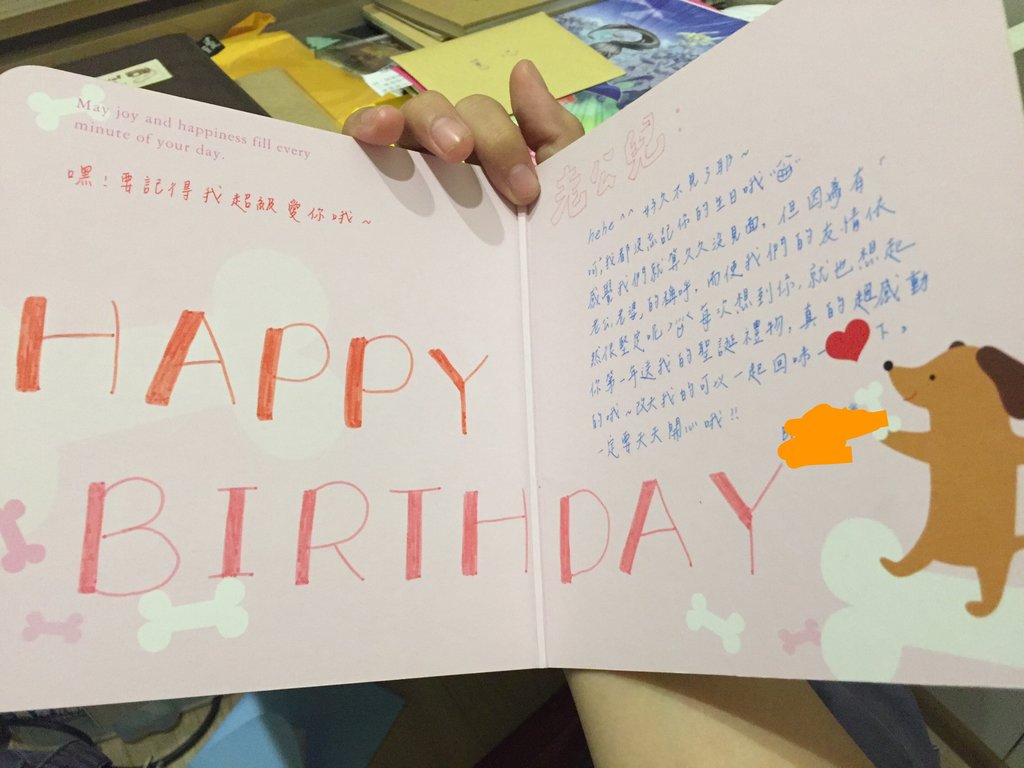 May joy and happiness fill every
minute of your day.
嘿！要記得我超級愛你哦～
HAPPY
BIRTHDAY
老公兒：
hehe^^ 好久不見了耶～
可我都沒忘記你的生日哦
感覺我們就算久久沒見面，但因為有
老公、老婆，的稱呼，而使我們的友情依
然很堅定呢 每次想到你，就也想起
你第一年送我的聖誕禮物，真的超感動
的哦～改天我的可以一起回味一下。
一定要天天開心哦!!